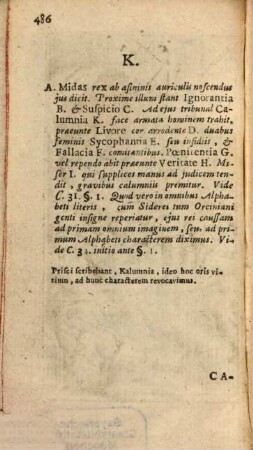 486
K.
A. Midas rex ab asininis auriculis noscendus
jus dicit. Proxime illum stant Ignorantia
B. & Suspicio C. Ad ejus tribunal Ca-
lumnia K. face armata hominem trahit,
præeunte Livore cor arrodente D. duabus
feminis Sycophantia E. seu insidiis, &
Fallacia F. comitantibus. Pœnitentia G.
vel rependo abit præeunte Veritate H. Mi-
ser I. qui supplices manus ad judicem ten-
dit, gravibus calumniis premitur. Vide
C. 31. §. 1. Quod vero in omnibus Alpha-
beti literis, cum Sideres tum Orciniani
genti insigne reperiatur, ejus rei caussam
ad primam omnium imaginem, seu ad pri-
mum Alphabeti characterem diximus. Vi-
de C. 34. initio ante §. 1.
Prisci scribebant, Kalumnia, ideo hoc oris vi-
tium, ad hunc characterem revocavimus.
C A-